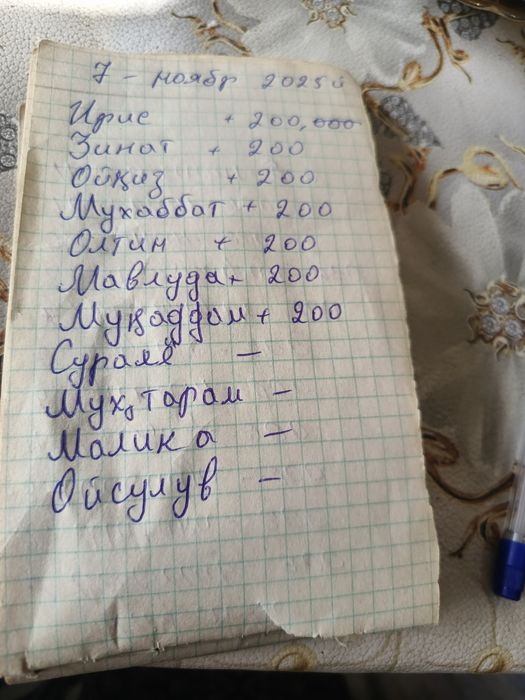 7 - ноябр 2025й
Ирис + 200,000
Зинат + 200
Ойқиз + 200
Мухаббат + 200
Олтин + 200
Мавлуда + 200
Муқаддам + 200
Сурайё -
Мухтарам -
Малика -
Ойсулув -